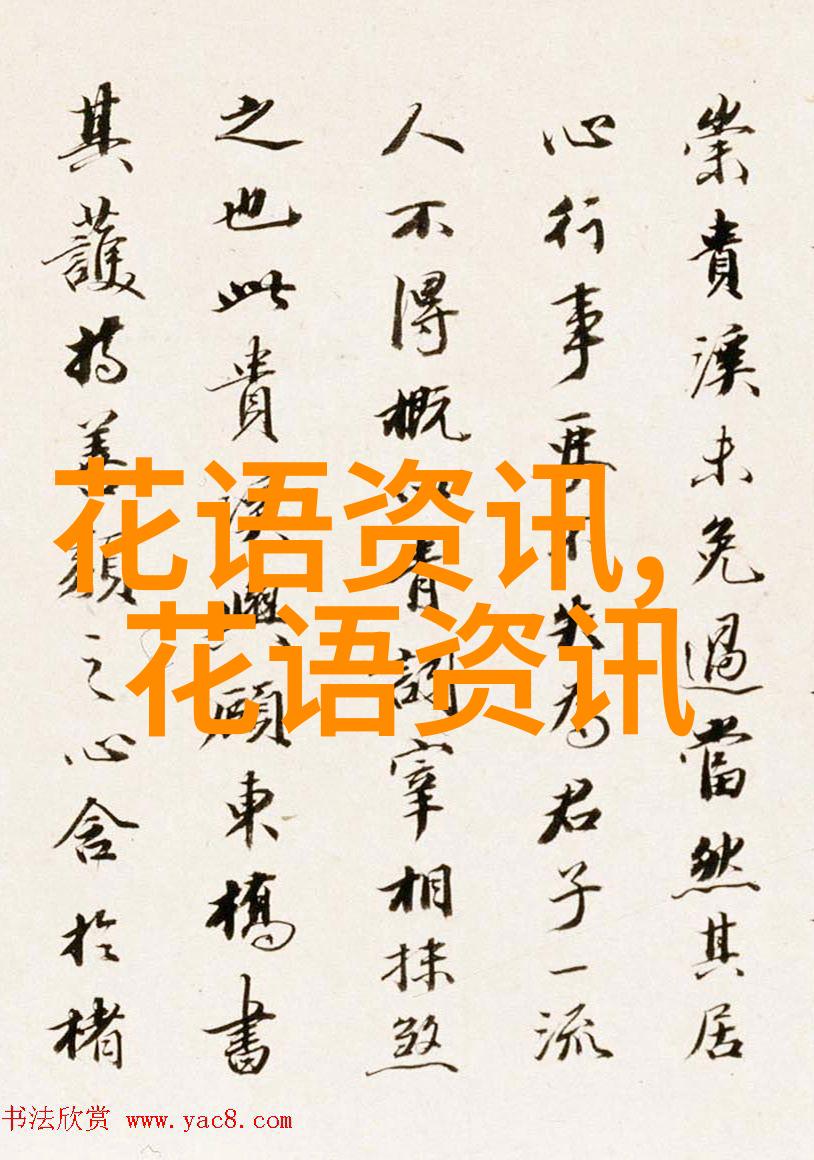 崇貴溪未免過當然其居
心行事要不失為君子一流
人不得概以青詞宰相抹煞
之也此貴溪與顧東橋書
其護持善類之心含於楮
花语资讯,
花语资讯
书法欣赏 www.yac8.com